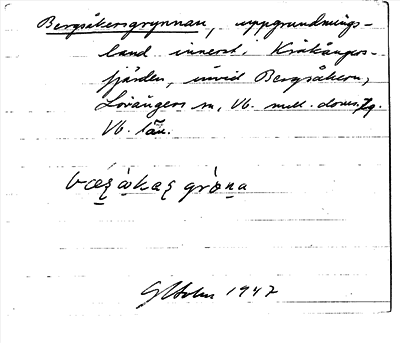 Bergsåkersgrynnan, uppgrundnings-
land innerst i Kråkångers-
fjärden, invid Bergsåkern,
Lövångers sn, Vb. mell. doms.
Vb. län.
G Holm 1947